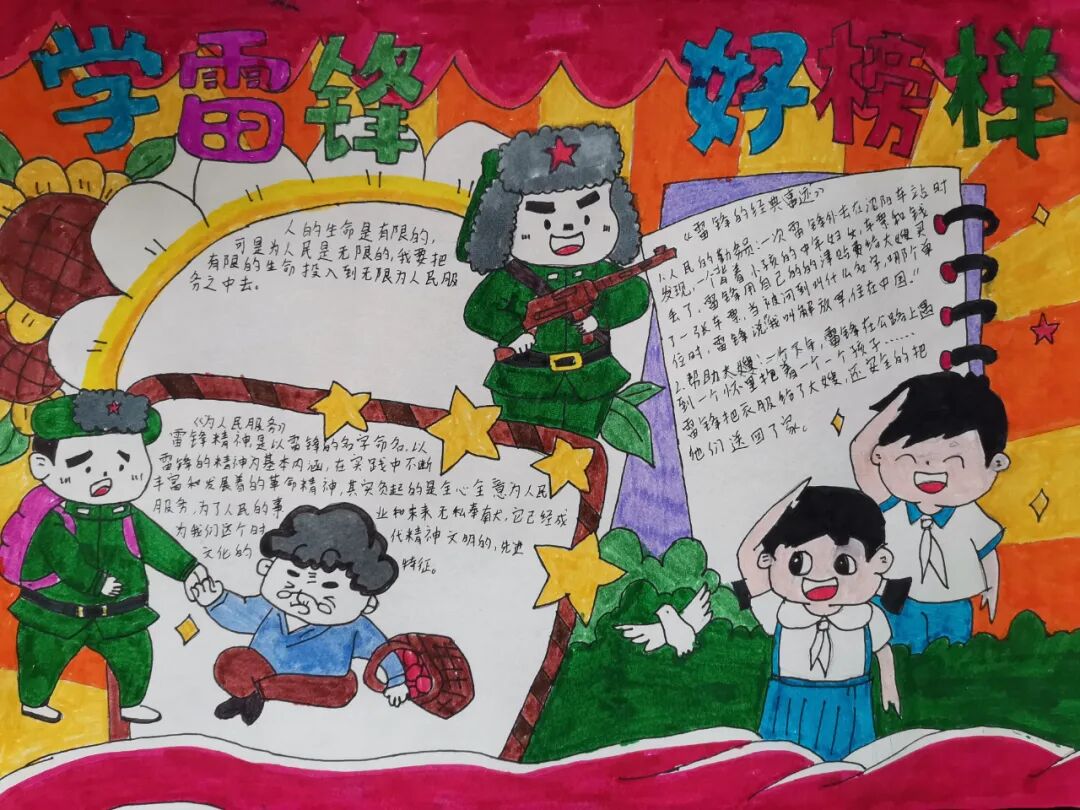 学雷锋 好榜样
人的生命是有限的,
可是为人民是无限的,我要把
有限的生命投入到无限为人民服
务之中去。
《为人民服务》
雷锋精神是以雷锋的名字命名,以
雷锋的精神为基本内涵,在实践中不断
丰富和发展着的革命精神,其实负起的是全心全意为人民
服务,为了人民的事 业和未来无私奉献,它已经成
为我们这个时 代精神文明的,先进
文化的 特征。
《雷锋的经典事迹》
1.人民的勤务员:一次雷锋外去在沈阳车站时
发现,一个背着小孩的中年妇女,车票和钱
丢了,雷锋用自己的的津贴费给大嫂买
了一张车票,当被问到叫什么名字,哪个单
位时,雷锋说“我叫解放军,住在中国。”
2.帮助大嫂:一个下午,雷锋在公路上遇
到一个怀里抱着一个一个孩子……
雷锋把衣服给了大嫂,还安全的把
他们送回了家。